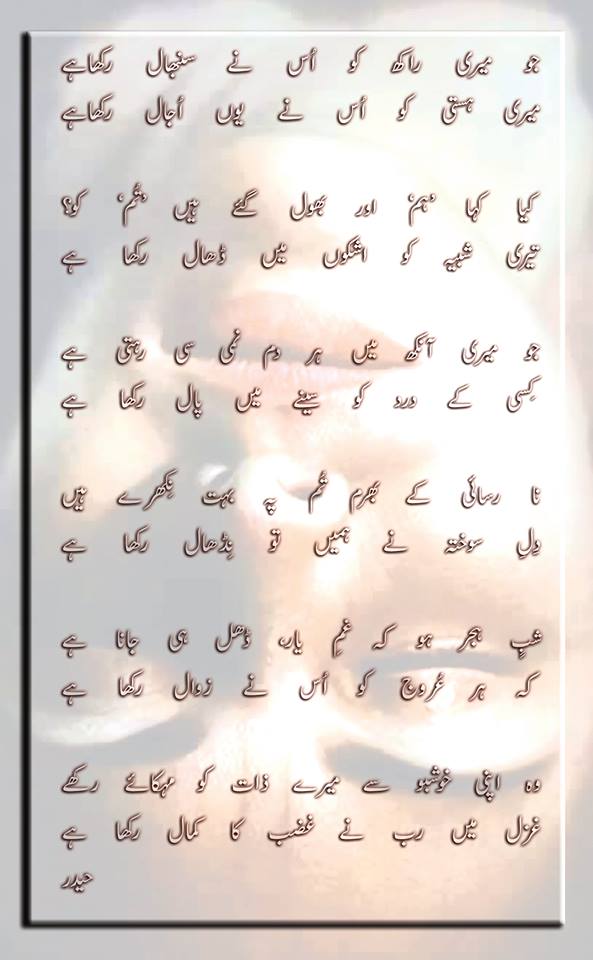 جو میری راکھ کو اُس نے سنبھال رکھاہے
میری ہستی کو اُس نے یوں اُجال رکھاہے
کیا کہا ’ہم‘ اور بھول گئے ہیں ’تُم‘ کو؟
تیری شبیہ کو اشکوں میں ڈھال رکھا ہے
جو میری آنکھ میں ہر دم نمی سی رہتی ہے
کِسی کے درد کو سینے میں پال رکھا ہے
نا رسائی کے بھرم تُم پہ بہت نِکھرے ہیں
دِلِ سوختہ نے ہمیں تو نِڈھال رکھا ہے
شبِ ہجر ہو کہ غمِ یار، ڈھل ہی جانا ہے
کہ ہر عُروج کو اُس نے زوال رکھا ہے
وہ اپنی خوشبو سے میرے ذات کو مہکائے رکھے
غزل میں رب نے غضب کا کمال رکھا ہے
حیدر